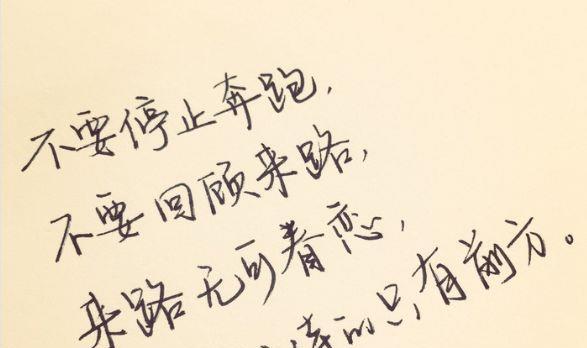 不要停止奔跑，
不要回顾来路，
来路无可眷恋，
待的只有前方。